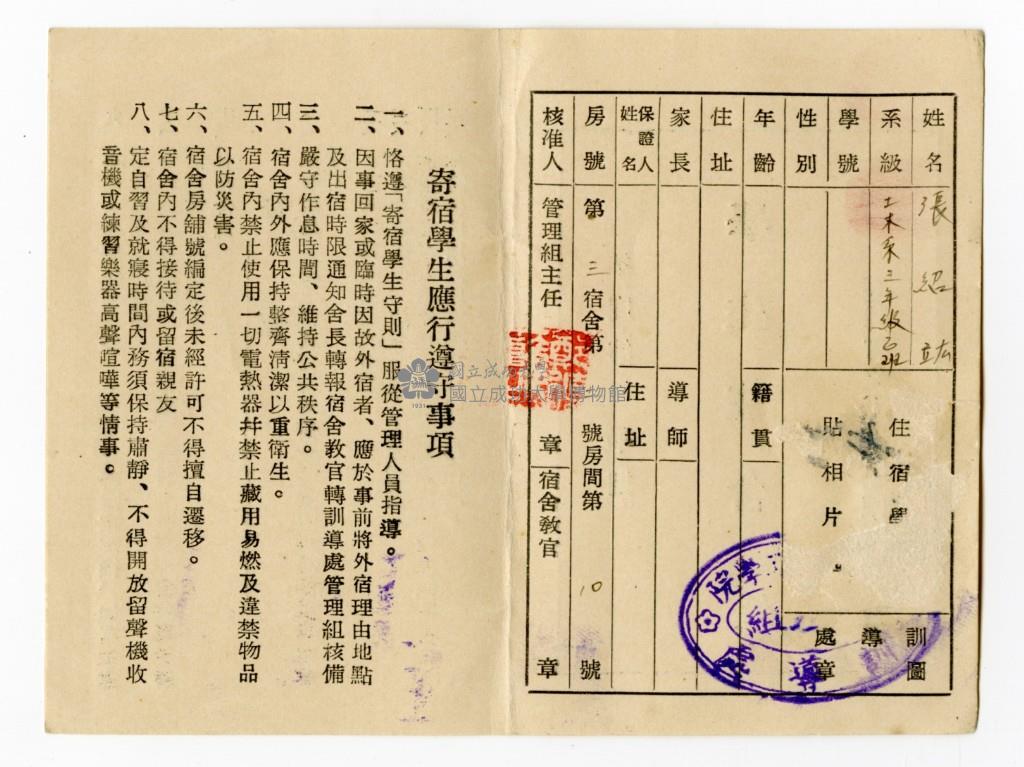 姓名 張紹竑
系級 土木系三年級乙班
學號
性別
年齡
籍貫
住址
家長
導師
保證人姓名
住址
房號 第三宿舍第 號房間第 10 號
核准人 管理組主任 章 宿舍教官 章
住宿學
貼相片
訓導處圖章
學院
導處
組
寄宿學生應行遵守事項
一、恪遵「寄宿學生守則」服從管理人員指導。
二、因事回家或臨時因故外宿者、應於事前將外宿理由地點
及出宿時限通知舍長轉報宿舍教官轉訓導處管理組核備
三、嚴守作息時間、維持公共秩序。
四、宿舍內外應保持整齊清潔以重衛生。
五、宿舍內禁止使用一切電熱器幷禁止藏用易燃及違禁物品
以防災害。
六、宿舍房舖號編定後未經許可不得擅自遷移。
七、宿舍內不得接待或留宿親友
八、定自習及就寢時間內務須保持肅靜、不得開放留聲機收
音機或練習樂器高聲喧嘩等情事。
國立成功大學
國立成功大學博物館
1931